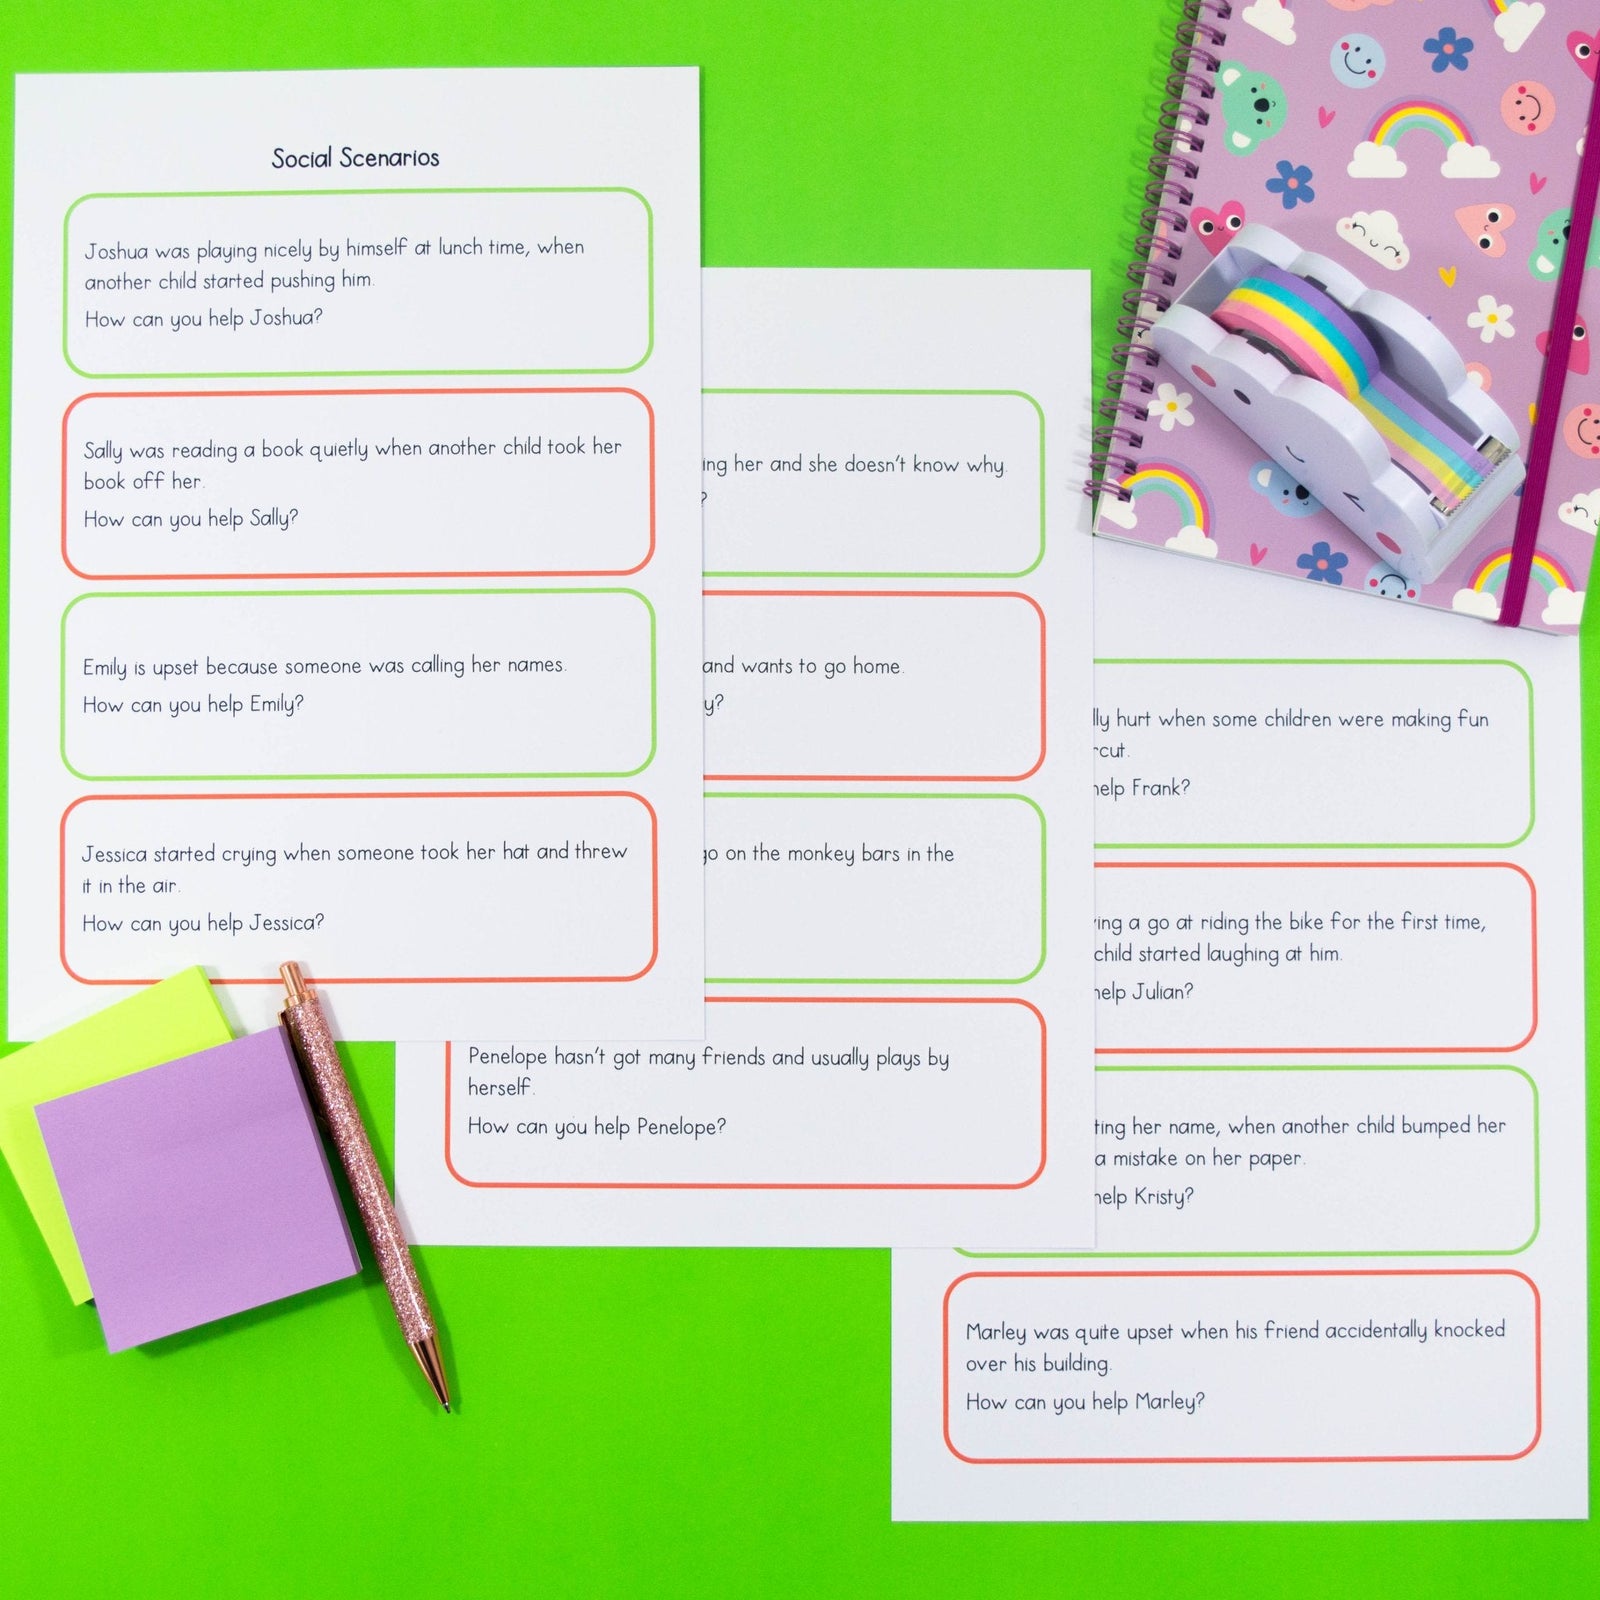 Social Scenarios
Joshua was playing nicely by himself at lunch time, when
another child started pushing him.
How can you help Joshua?
Sally was reading a book quietly when another child took her
book off her.
How can you help Sally?
Emily is upset because someone was calling her names.
How can you help Emily?
Jessica started crying when someone took her hat and threw
it in the air.
How can you help Jessica?
her and she doesn't know why.
and wants to go home.
go on the monkey bars in the
Penelope hasn't got many friends and usually plays by
herself.
How can you help Penelope?
hurt when some children were making fun
help Frank?
a go at riding the bike for the first time,
child started laughing at him.
help Julian?
her name, when another child bumped her
a mistake on her paper.
help Kristy?
Marley was quite upset when his friend accidentally knocked
over his building.
How can you help Marley?